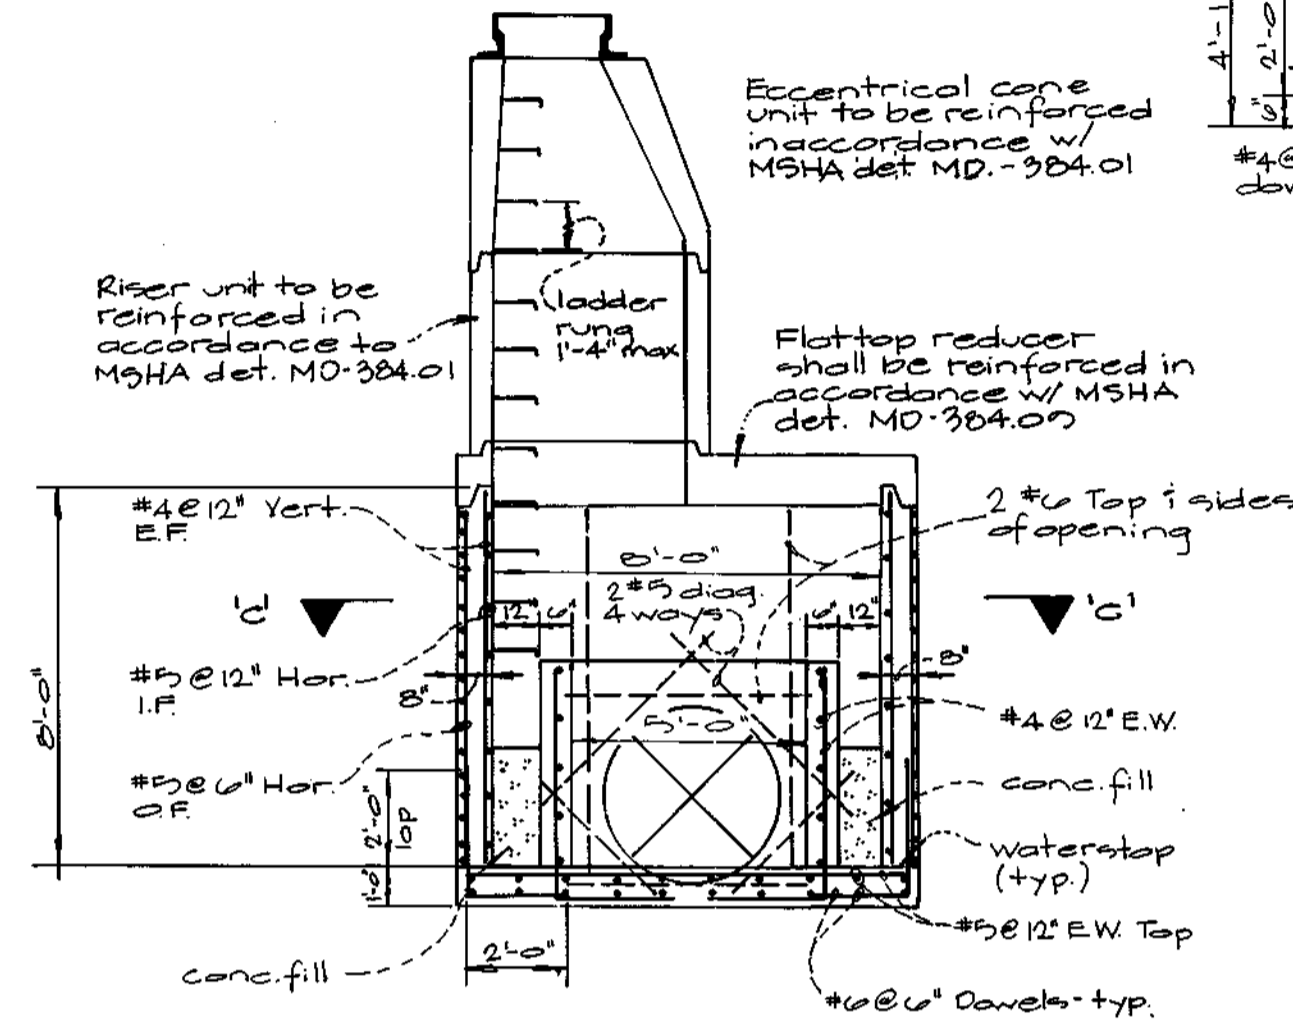 Eccentrical cone
unit to be reinforced
in accordance w/
MSHA det. MD.-384.01
4'-1
2'-0
6"
#4@
dow
Riser unit to be
reinforced in
accordance to
MSHA det. MD-384.01
ladder
rung
1'-4" max
Flat top reducer
shall be reinforced in
accordance w/ MSHA
det. MD-384.05
#4@12" Vert.
E.F.
2 #6 Top & sides
of opening
8'-0"
2 #5 diag.
4 ways
'C'
12" 6"
6" 12"
'C'
#5@12" Hor.
I.F.
8"
8"
8'-0"
#4@12" E.W.
5'-0"
#5@6" Hor.
O.F.
2'-0"
lap
conc. fill
waterstop
(typ.)
1'-0"
#5@12" E.W. Top
2'-0"
conc. fill
#6@6" Dowels-typ.